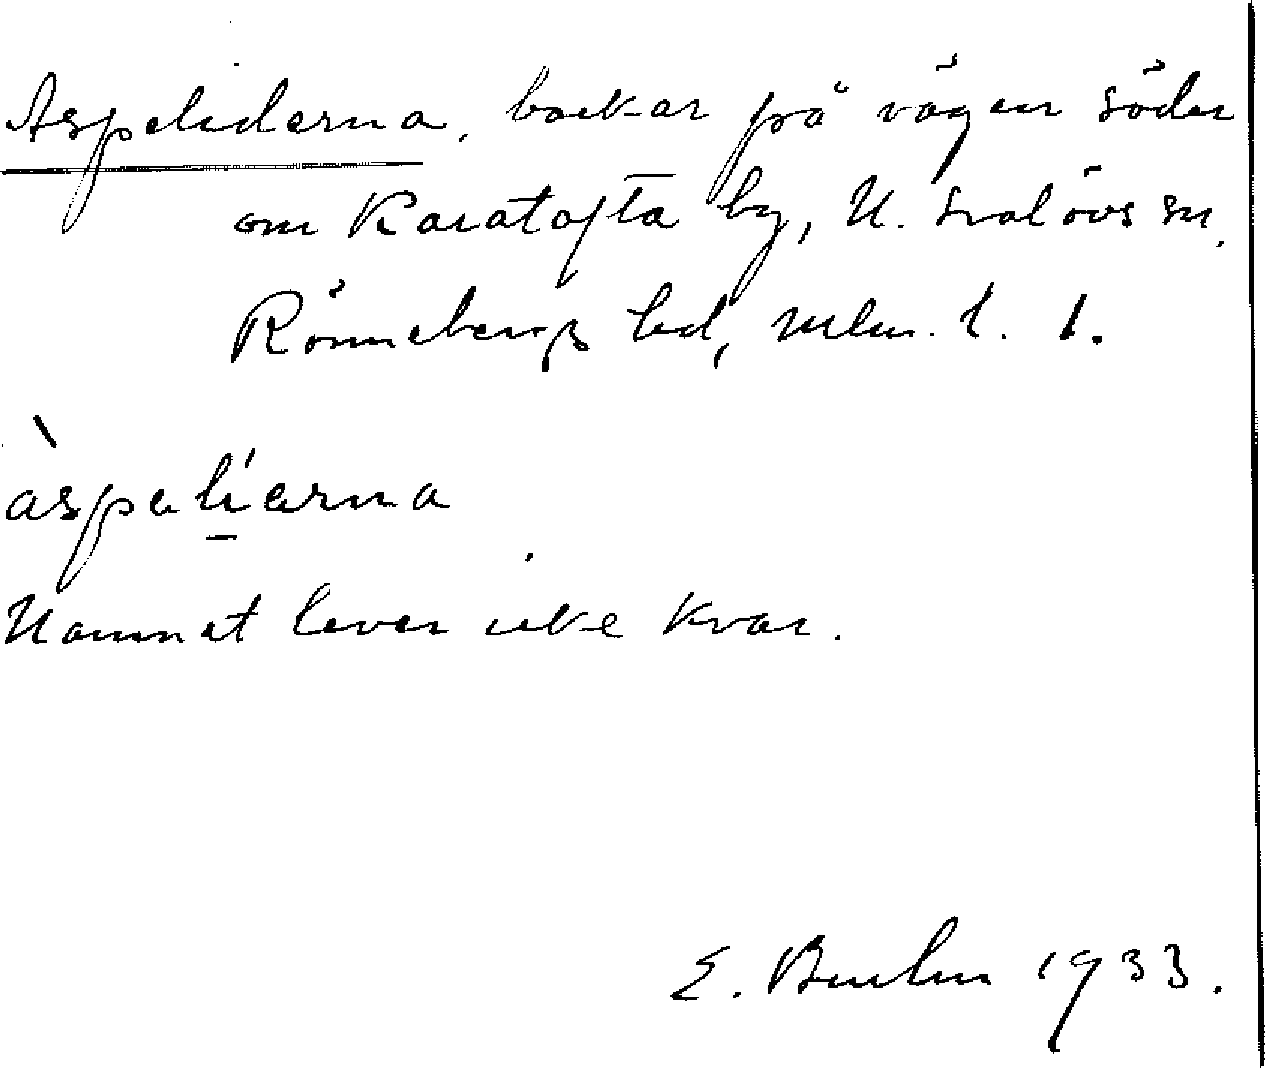 Aspeliderna, backar på vägen söder
om Karatofta by, N. Svalövs sn,
Rönnebergs hd, Mlm. l. 1.
àspalíarna
Namnet lever icke kvar.
E. 1933.